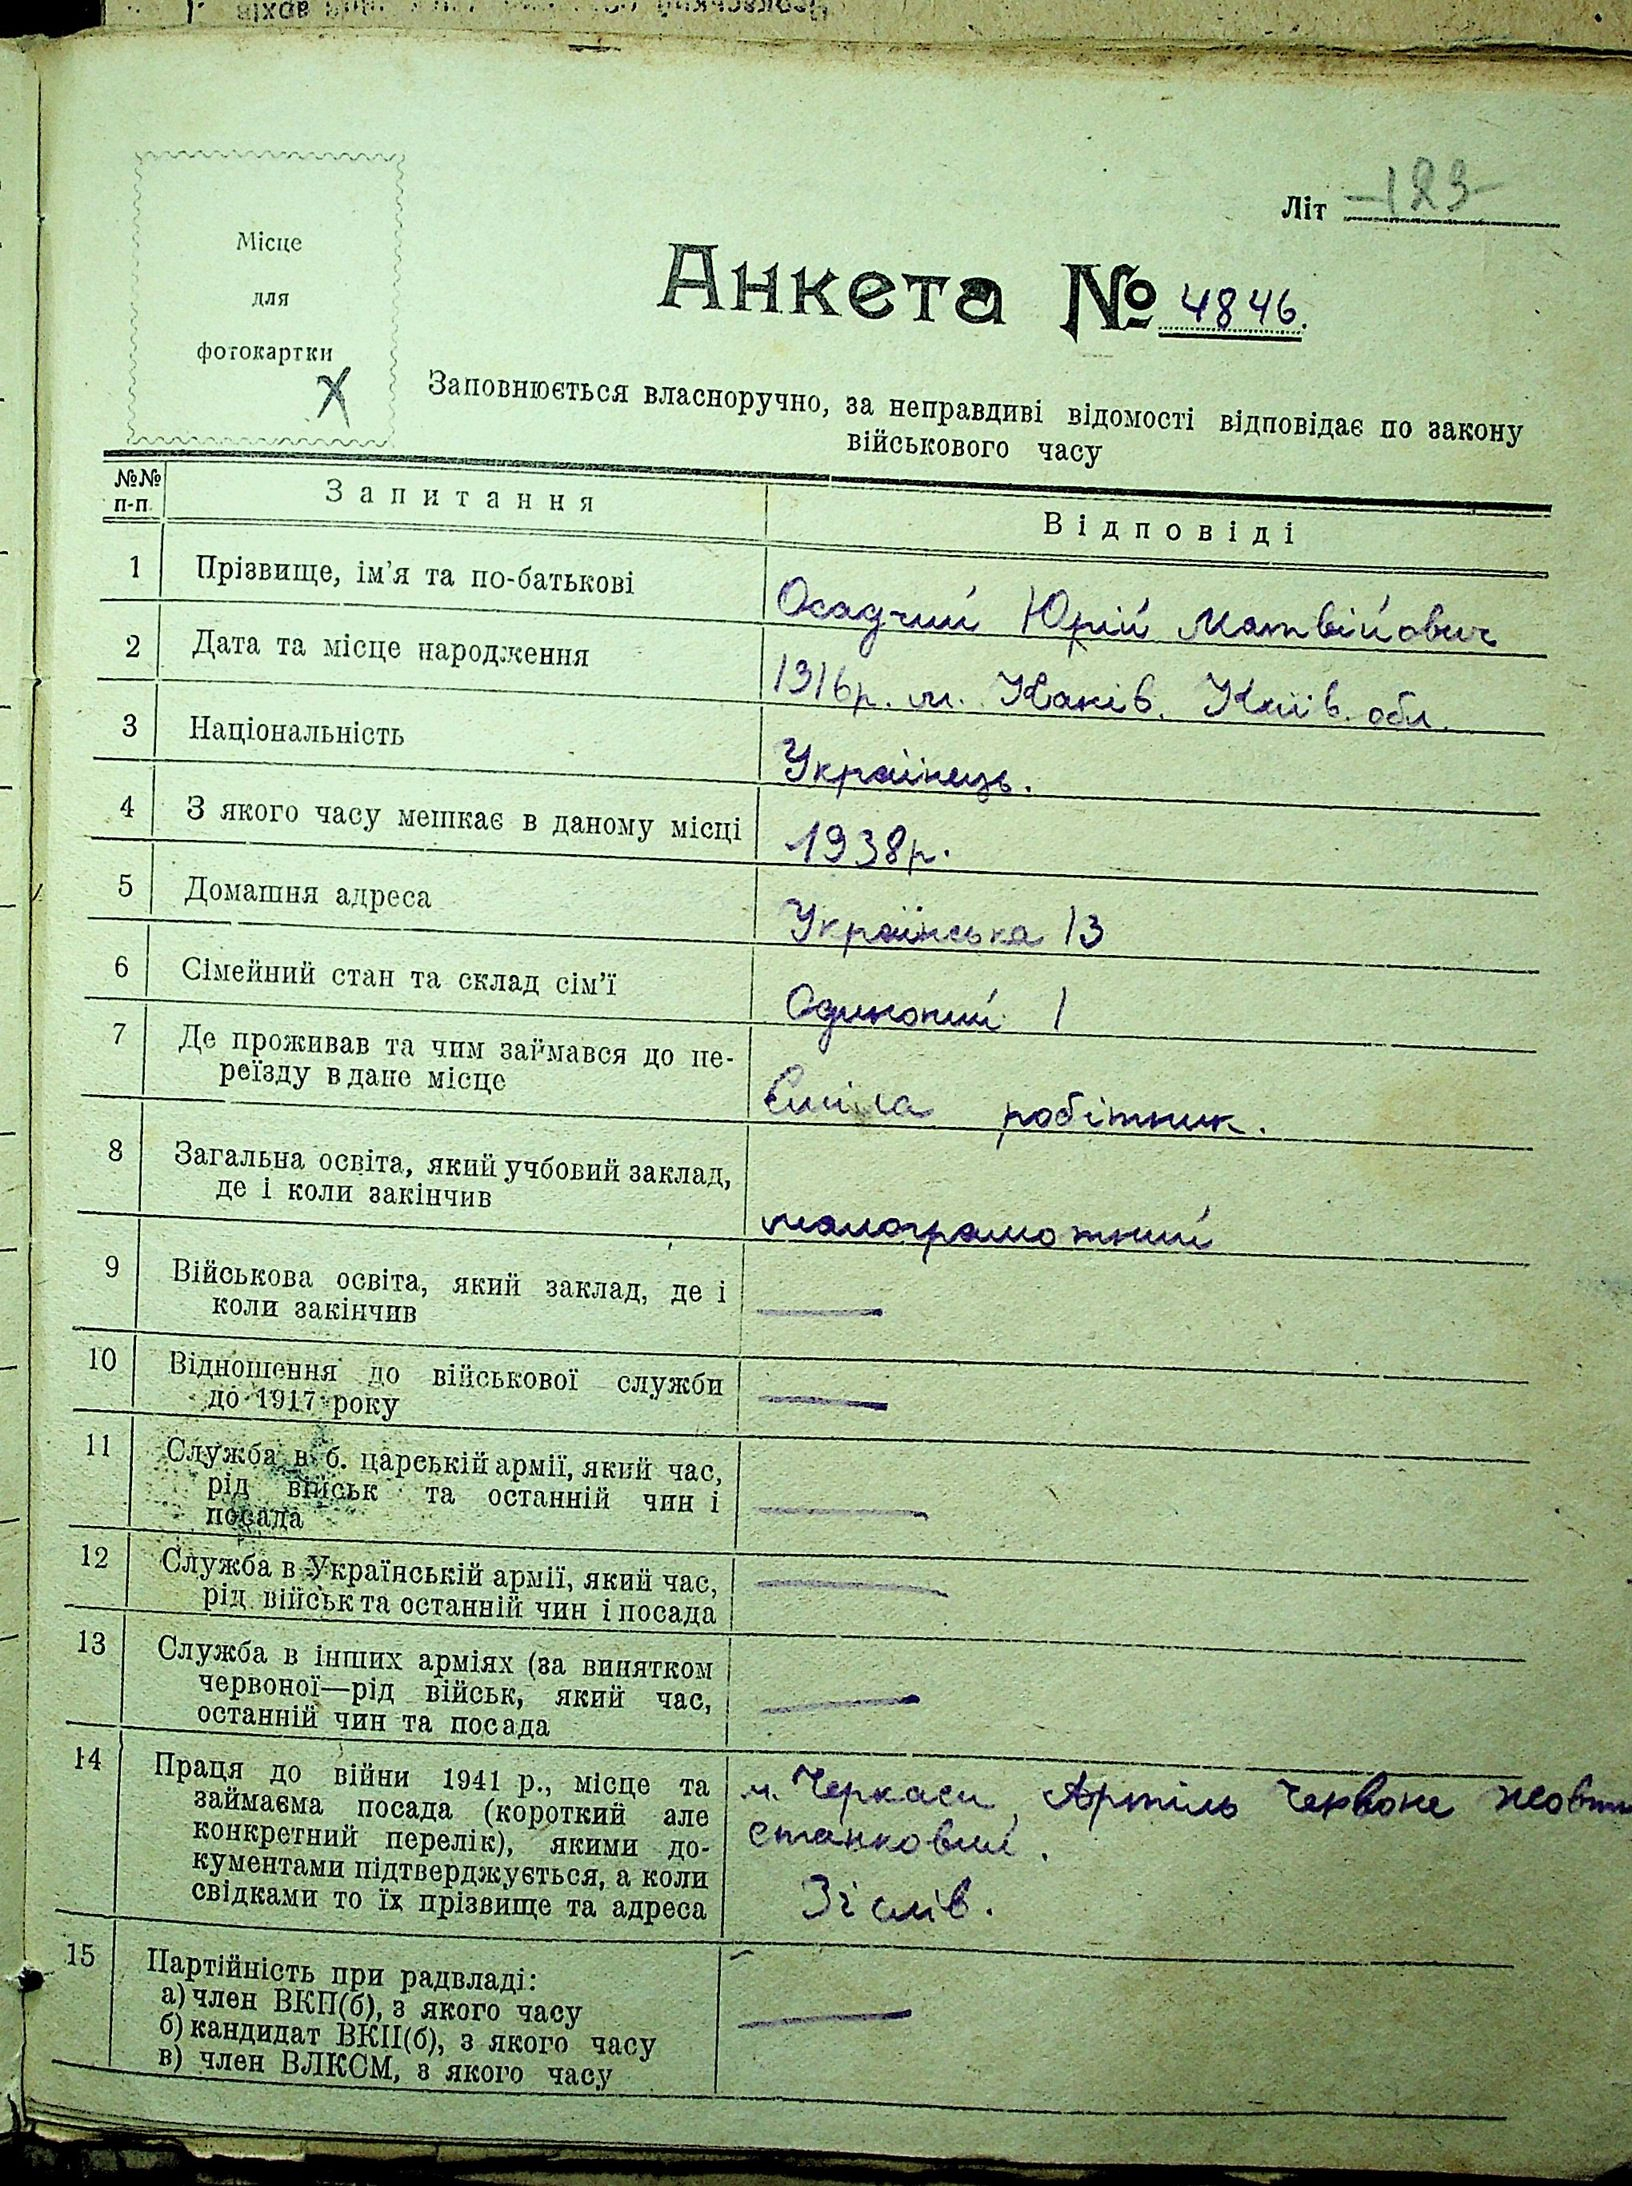 Літ -123-
Місце
для
фотокартки
X
Анкета № 4846.
Заповнюється власноручно, за неправдиві відомості відповідає по закону
військового часу
№№ п-п. Запитання Відповіді
1 Прізвище, ім'я та по-батькові Осадчий Юрій Матвійович
2 Дата та місце народження 1916р. м. Канів. Київ. обл.
3 Національність Українець.
4 З якого часу мешкає в даному місці 1938р.
5 Домашня адреса Українська 13
6 Сімейний стан та склад сім'ї Одинокий 1
7 Де проживав та чим займався до пе-
реїзду в дане місце Сміла робітник.
8 Загальна освіта, який учбовий заклад,
де і коли закінчив малограмотний
9 Військова освіта, який заклад, де і
коли закінчив —
10 Відношення до військової служби
до 1917 року —
11 Служба в б. царській армії, який час,
рід військ та останній чин і
посада —
12 Служба в Українській армії, який час,
рід військ та останній чин і посада —
13 Служба в інших арміях (за винятком
червоної—рід військ, який час,
останній чин та посада —
14 Праця до війни 1941 р., місце та
займаєма посада (короткий але
конкретний перелік), якими до-
кументами підтверджується, а коли
свідками то їх прізвище та адреса
м. Черкаси, Артіль Червоне
станковий.
Зі слів.
15 Партійність при радвладі:
а) член ВКП(б), з якого часу
б) кандидат ВКП(б), з якого часу
в) член ВЛКСМ, з якого часу —